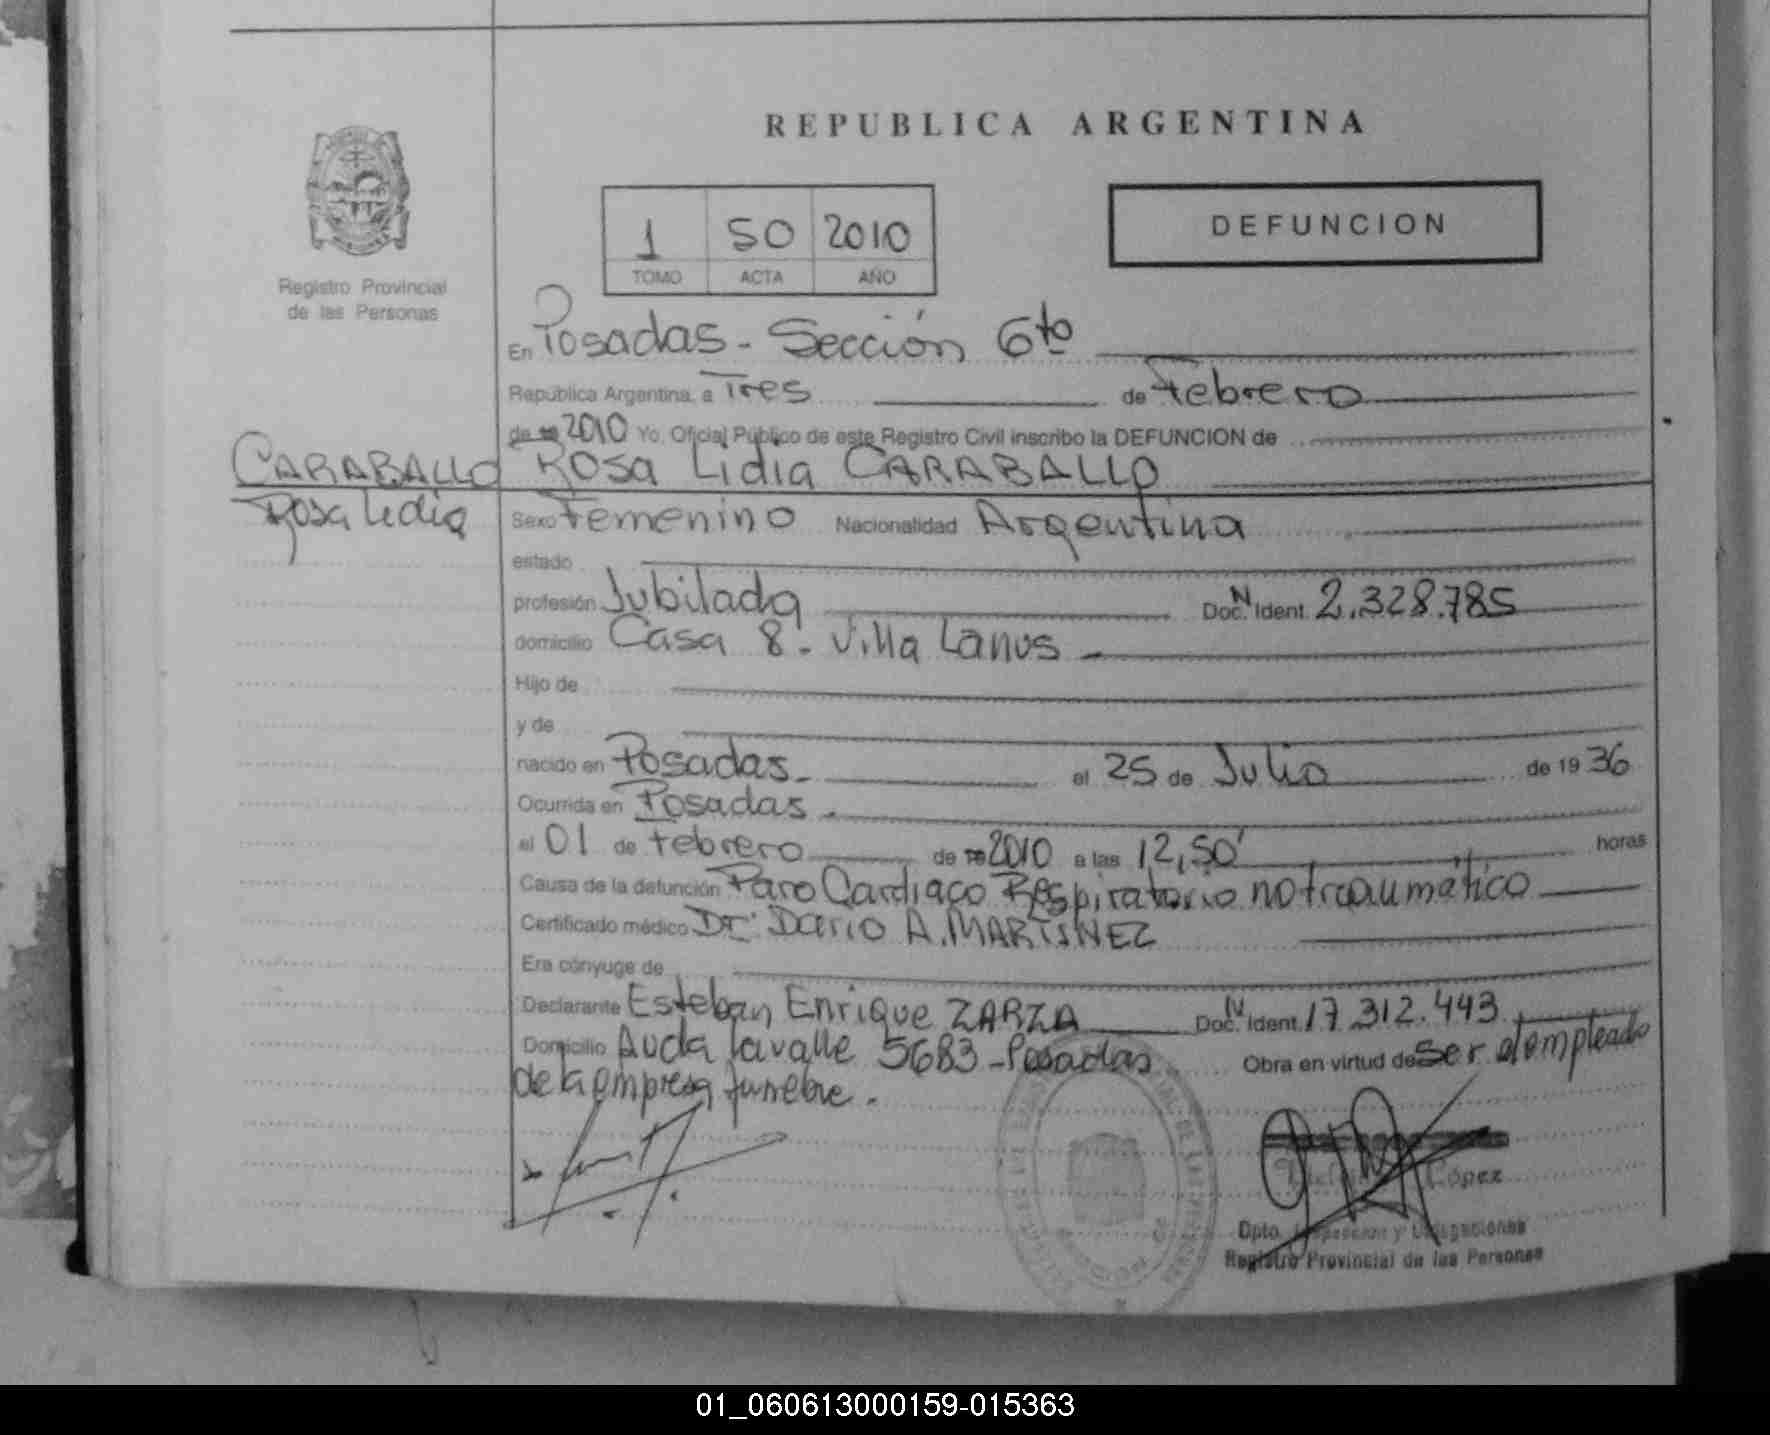 REPUBLICA ARGENTINA
1 50 2010
TOMO ACTA AÑO
DEFUNCION
Registro Provincial
de las Personas
En Posadas - Sección 6to
República Argentina, a Tres de Febrero
de 2010 Yo, Oficial Público de este Registro Civil inscribo la DEFUNCION de
CARABALLO
Rosa Lidia
Rosa Lidia CARABALLO
Sexo Femenino Nacionalidad Argentina
estado
profesión Jubilada Doc. N Ident. 2.328.785
domicilio Casa 8 - Villa Lanus -
Hijo de
y de
nacido en Posadas - el 25 de Julio de 1936
Ocurrida en Posadas -
el 01 de febrero de 2010 a las 12,50' horas
Causa de la defunción Paro Cardiaco Respiratorio no traumático
Certificado médico Dr. Dario A. MARTINEZ
Era cónyuge de
Declarante Esteban Enrique ZARZA Doc. N Ident. 17.312.443
Domicilio Avda Lavalle 5683 - Posadas Obra en virtud de ser el empleado
de la empresa funebre.
López
Dpto. Inspección y Delegaciones
Registro Provincial de las Personas
01_060613000159-015363